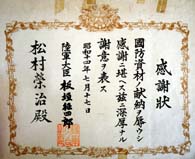 感謝狀
國防資材ノ献納ヲ辱ウシ
感謝ニ堪ヘス玆ニ深厚ナル
謝意ヲ表ス
昭和十四年七月十七日
陸軍大臣 板垣征四郎
松村榮治殿